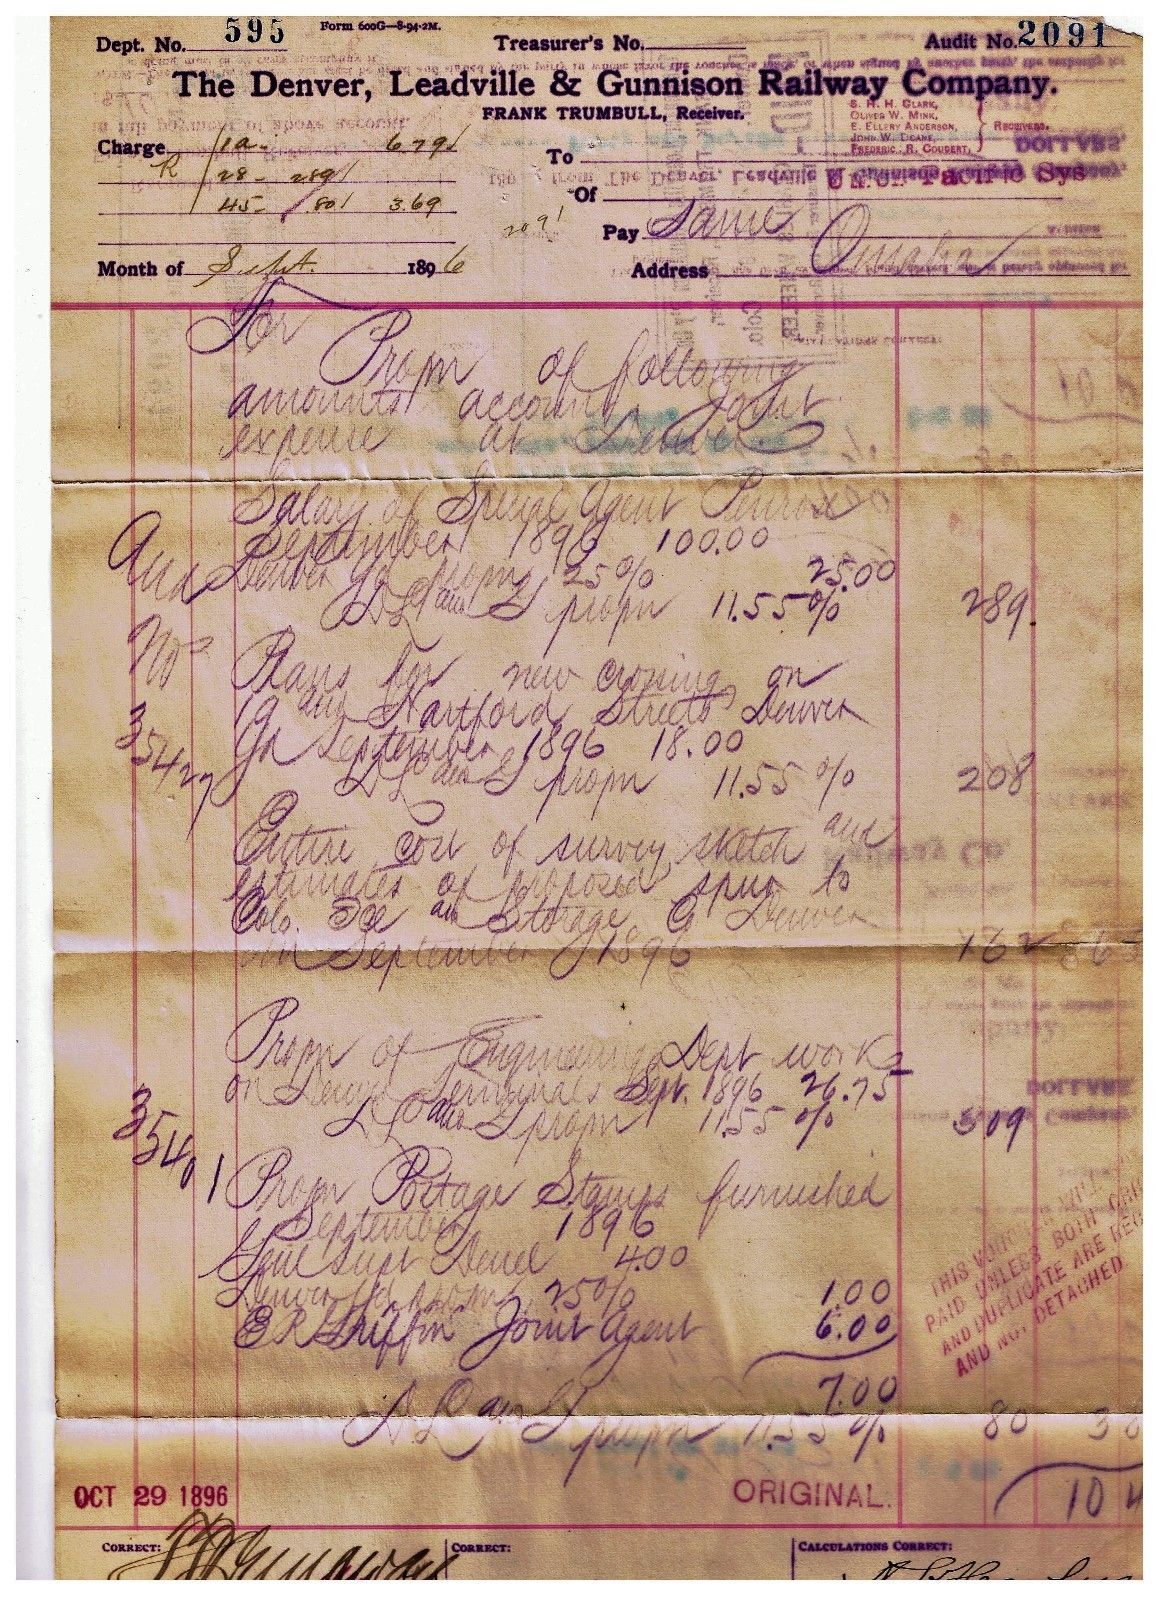 Dept. No. 595
Form 600G—8-94-2M.
Treasurer's No.
Audit No. 2091
The Denver, Leadville & Gunnison Railway Company.
FRANK TRUMBULL, Receiver.
S. H. H. CLARK,
OLIVER W. MINK,
E. ELLERY ANDERSON,
JOHN W. DOANE,
FREDERIC. R. COUDERT,
RECEIVERS.
Charge 1a- 679
R 28- 289
45- .80 3.69
To
Union Pacific Sys
Of
2091
Pay Same
Month of Sept. 1896
Address Omaha
For
Propn of following
amounts account Joint
expense at Denver
Salary of Special Agent Penrose
September 1896 100.00
Denver Jct propn 25% 25.00
D L and G propn 11.55% 289
Aud
No
35427
Plans for new crossing on
19 and Hartford Streets Denver
September 1896 18.00
D L and G propn 11.55% 208
Entire cost of survey sketch and
estimates of proposed spur to
Colo. Ice and Storage Co Denver
in September 1896 162
Propn of Engineering Dept work
on Denver Terminals Sept. 1896 26.75
D L and G propn 11.55% 309
35401
Propn Postage Stamps furnished
September 1896
Genl Supt Deuel 4.00
Denver Jct propn 25% 1.00
E R Griffin Joint Agent 6.00
7.00
D L and G propn 11.55% 80
THIS VOUCHER WILL
PAID UNLESS BOTH ORI
AND DUPLICATE ARE REC
AND NOT DETACHED
OCT 29 1896
ORIGINAL.
10 4
CORRECT:
CORRECT:
CALCULATIONS CORRECT: